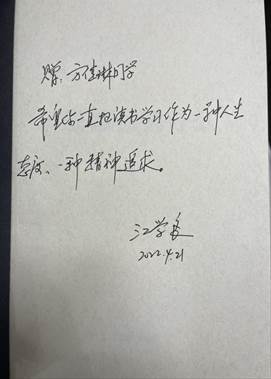 赠：方佳琳同学
希望你一直把读书学习作为一种人生
态度、一种精神追求。
江学
2022.9.21